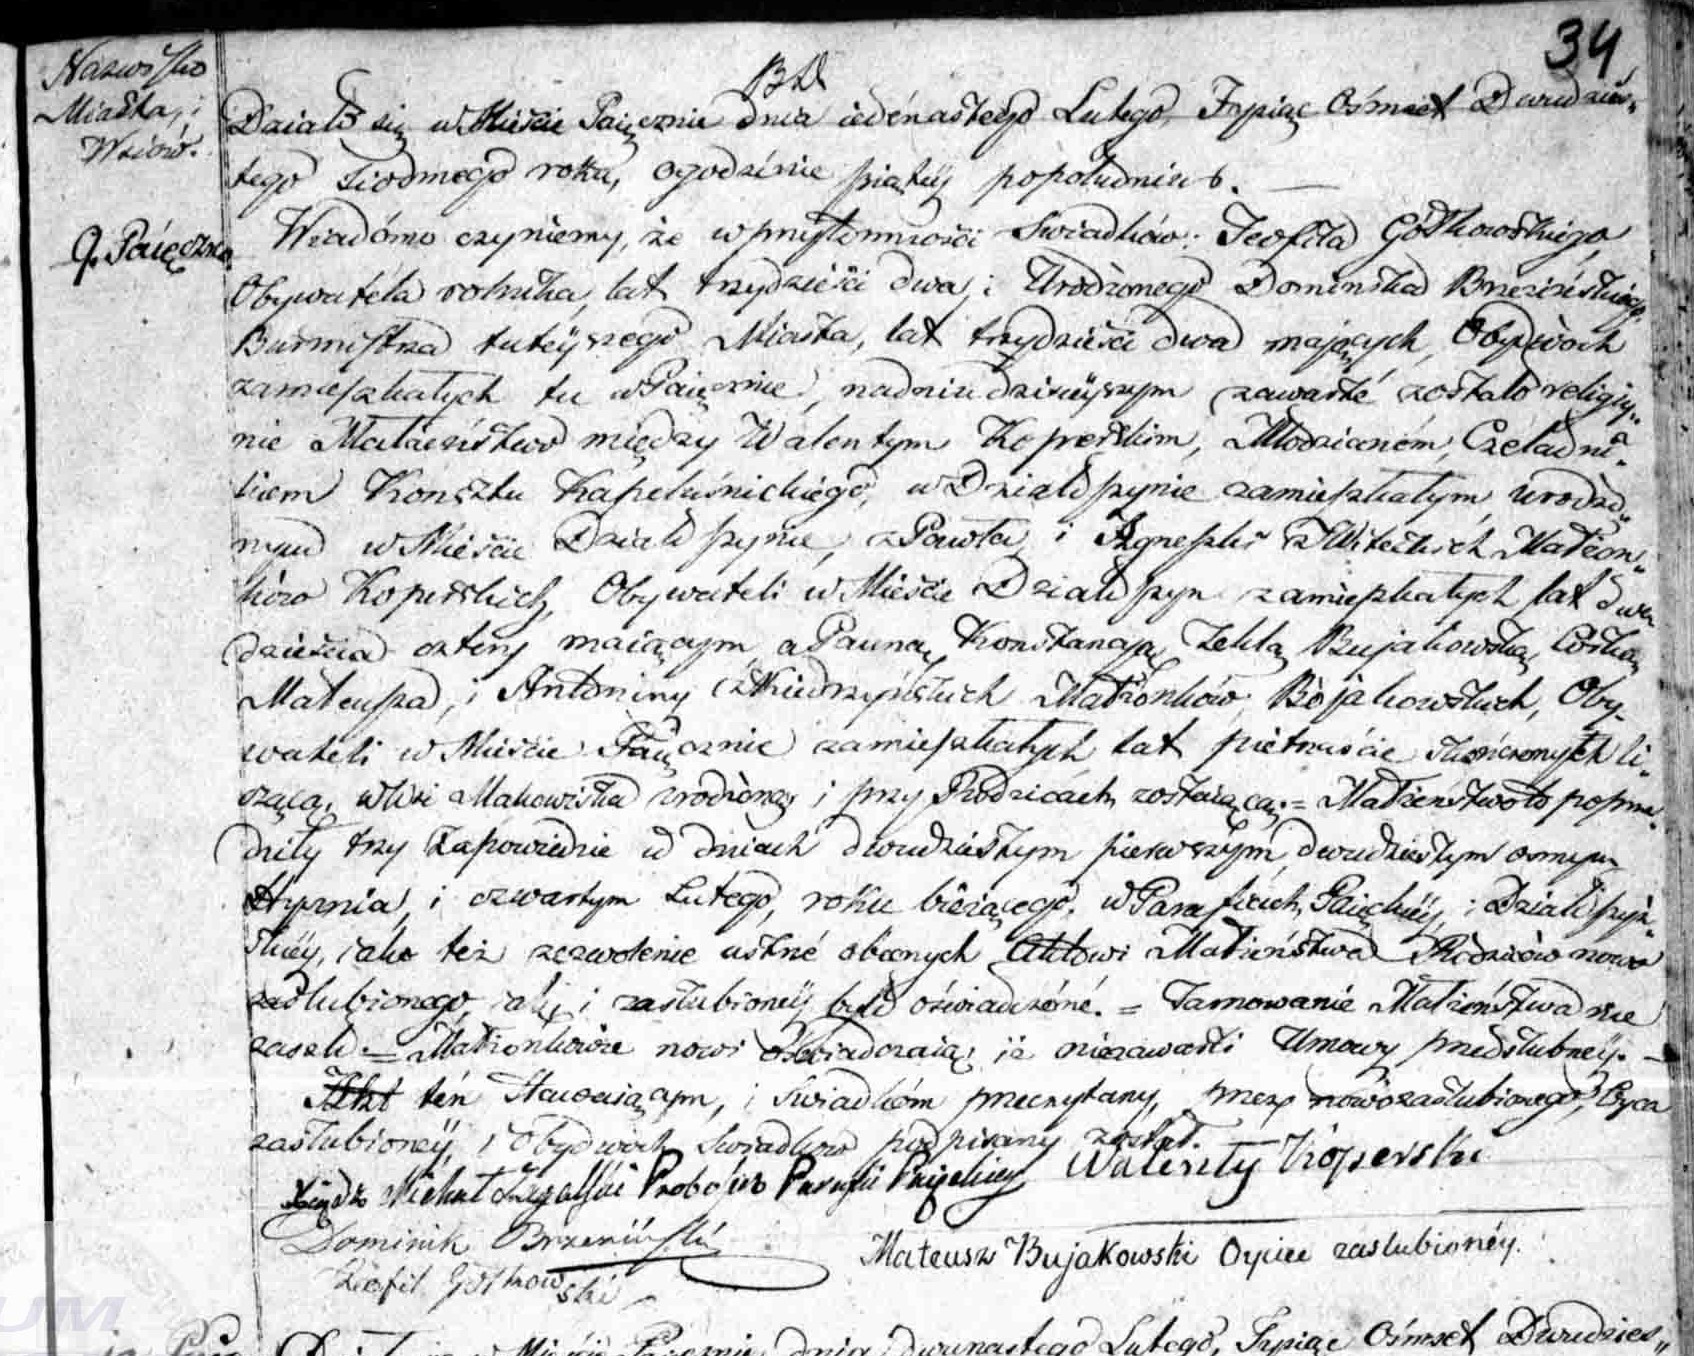 34
Nazwisko
Miasta, i
Wsiów.
BD
Działo się w Mieście Paięcznie dnia iedenastego Lutego, Tysiąc Ośmset Dwudzies„
tego Siodmego roku, ogodzinie piątey popołudniu.
9. Paięczno
Wiadómo czyniemy, że wprzytomności Swiadków: Teofila Gółkowskiego,
Obywatela rolnika, lat trzydzieści dwa, i Urodzonego Dominika Brzezińskiego
Burmistrza tuteyszego Miasta, lat trzydzieści dwa maiących, Obydwoch
zamieszkałych tu w Paięcznie, na dniu dzisieyszym zawarté zostało religiy„
nie Małżeństwo między Walentym Koperskim, Młodzianém, Czeladni„
kiem Kónsztu Kapeluśnickiégo, w Działoszynie zamieszkałym, urodzo„
nym w Mieście Działoszynie, z Pawła i Agneszki z Witeckich Małżon„
ków Koperskich, Obywateli w Mieście Działoszyn zamieszkałych lat dwa
dzieścia cztery maiącym, a Panną Konstancyą Teklą Bujakowską, Córką
Mateusza, i Antoniny z Kiedrzyńskich Małżonków Bojakowskich, Oby„
wateli w Mieście Paięcznie zamieszkałych lat piętnaście skończonych li„
czącą, wWsi Makowiska urodzoną, i przy Rodzicach zostaiącą. = Małżeństwo to poprze„
dziły trzy Zapowiedzie w dniach dwudziestym pierwszym, dwudziestym osmym
Stycznia, i czwartym Lutego, roku bieżącego, w Parafiach, Paięckiéy, i Działoszyń„
skiéy, iako też zezwolenie ustné obecnych Aktowi Małżeństwa Rodziców nowo
zaślubionego, iak i zaślubionéy było oświadczoné. = Tamowanie Małżeństwa nie
zaszło = Małżonkowie nowi Oświadczaią, iż niezawarli Umowy przedślubnéy. —
Akt tén Stawaiącym, i Swiadkóm przeczytany, przez nówozaślubionego, Oyca
zaślubionéy, i Obydwoch Swiadków podpisany został.
Xiądz Michał Zagalski Proboszcz Parafii Paięckiey Walenty Koperski
Dominik Brzeziński
Mateusz Bujakowski Oyciec zaslubionéy.
Teofil Gółkowski
Działo się w Mieście Paięcznie, dnia dwunastego Lutego, Tysiąc Ośmset Dwudzies„